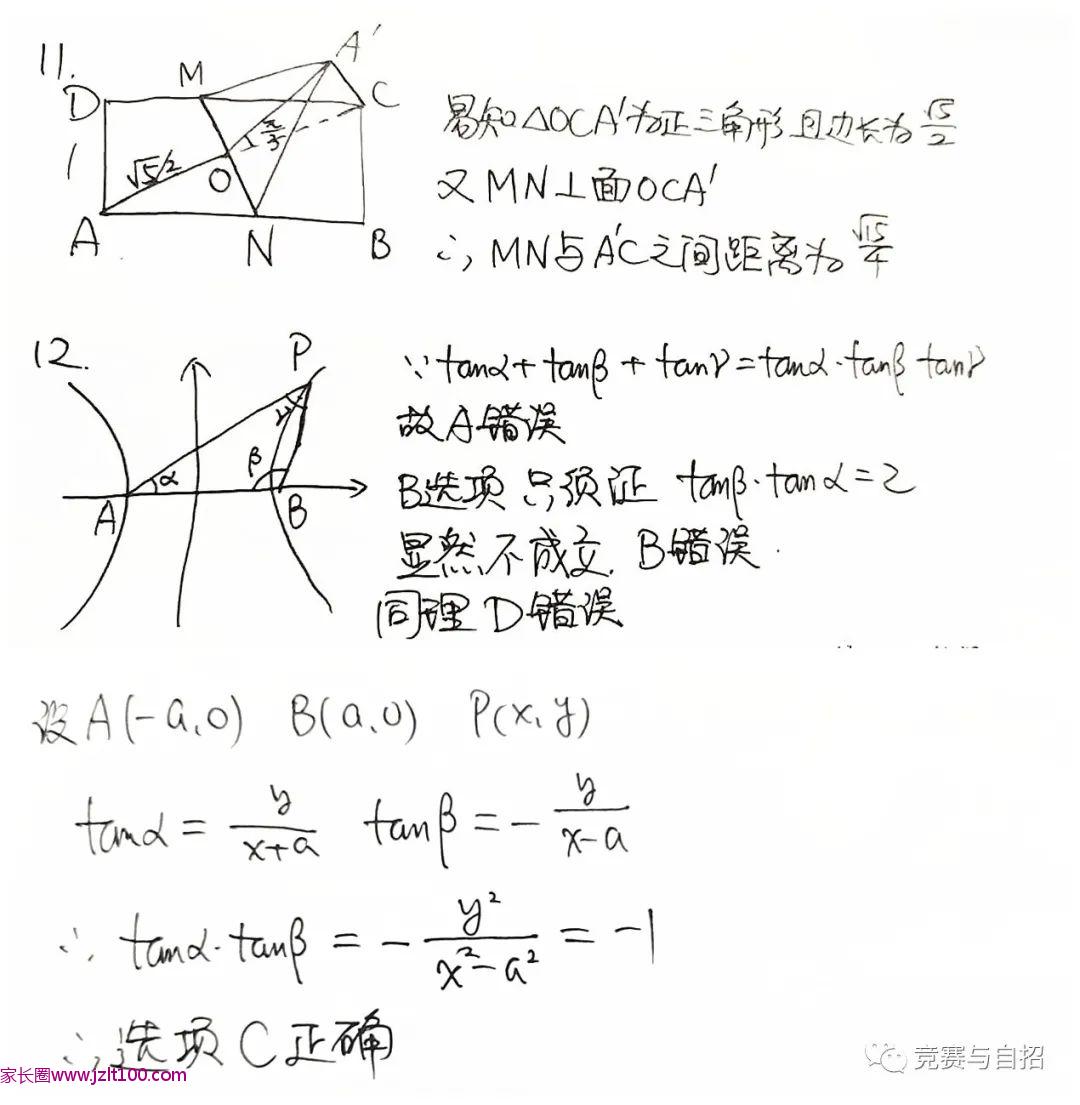 11.
D M A' C
1 √5/2 O π/3
A N B
易知△OCA'为正三角形且边长为√5/2
又MN⊥面OCA'
∴MN与A'C之间距离为√15/4
12.
P
γ
α β
A B
∵tanα+tanβ+tanγ=tanα·tanβ tanγ
故A错误
B选项只须证 tanβ·tanα=2
显然不成立. B错误.
同理D错误
设A(-a,0) B(a,0) P(x,y)
tanα = y/(x+a) tanβ = - y/(x-a)
∴ tanα·tanβ = - y²/(x²-a²) = -1
∴选项C正确
竞赛与自招
家长圈www.jzlt100.com